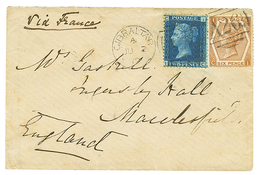 Via France
GIBRALTAR
A
POSTAGE
TWO PENCE
SIX PENCE
Mrs Gaskell
Ingersley Hall
Macclesfield
England